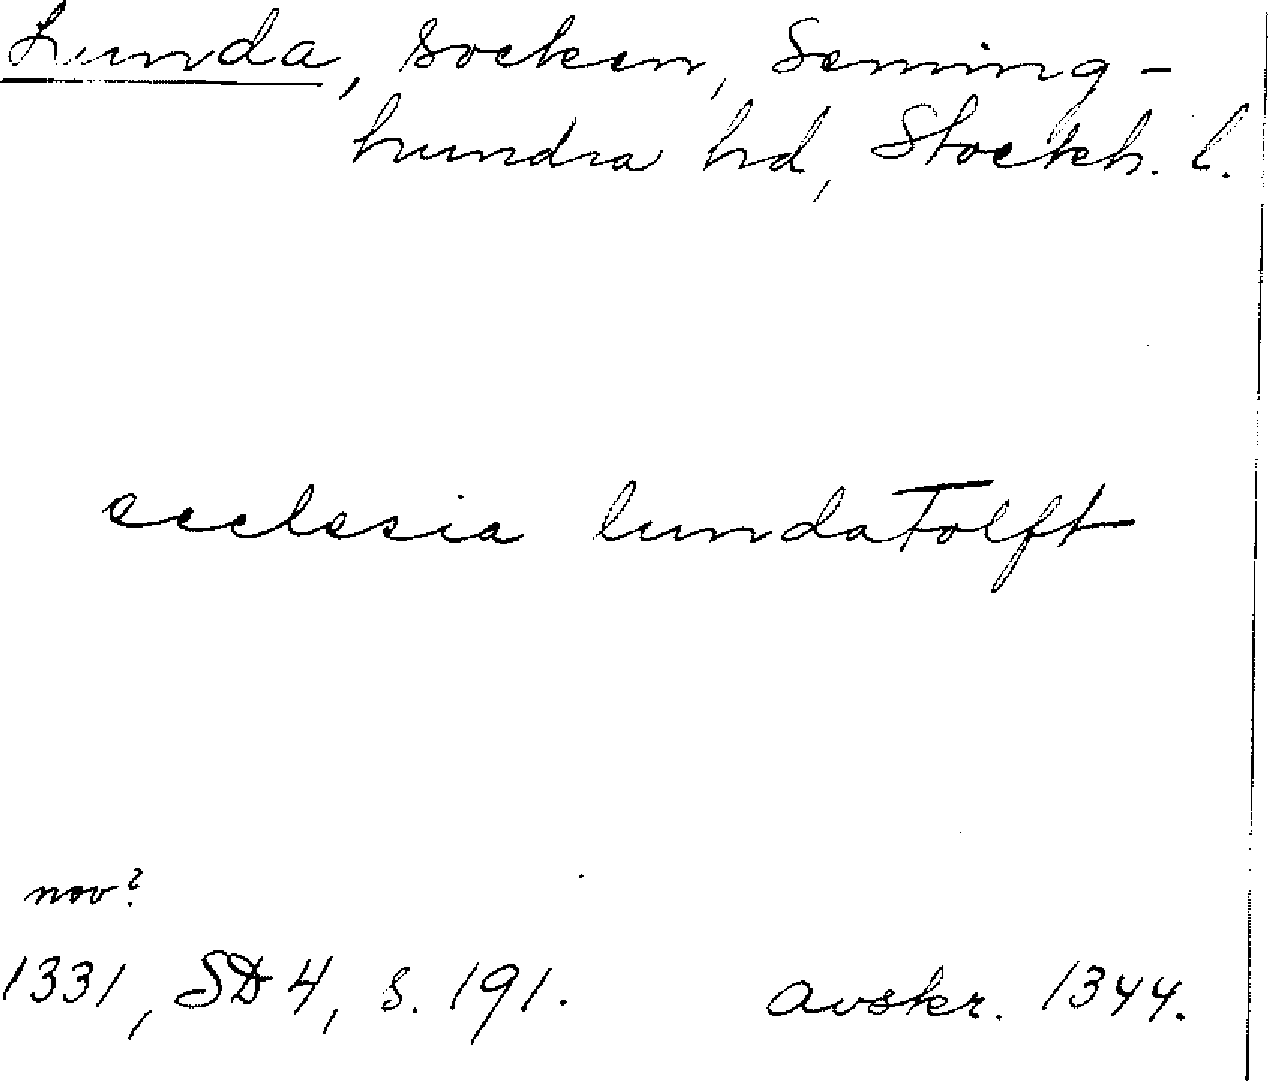 Lunda, socken, Seming-
hundra hd, Stockh. l.
ecclesia lundaTolft
nov?
1331, SD 4, s. 191. avskr. 1344.